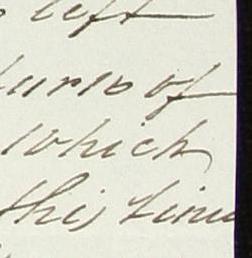 left
of
which
this time